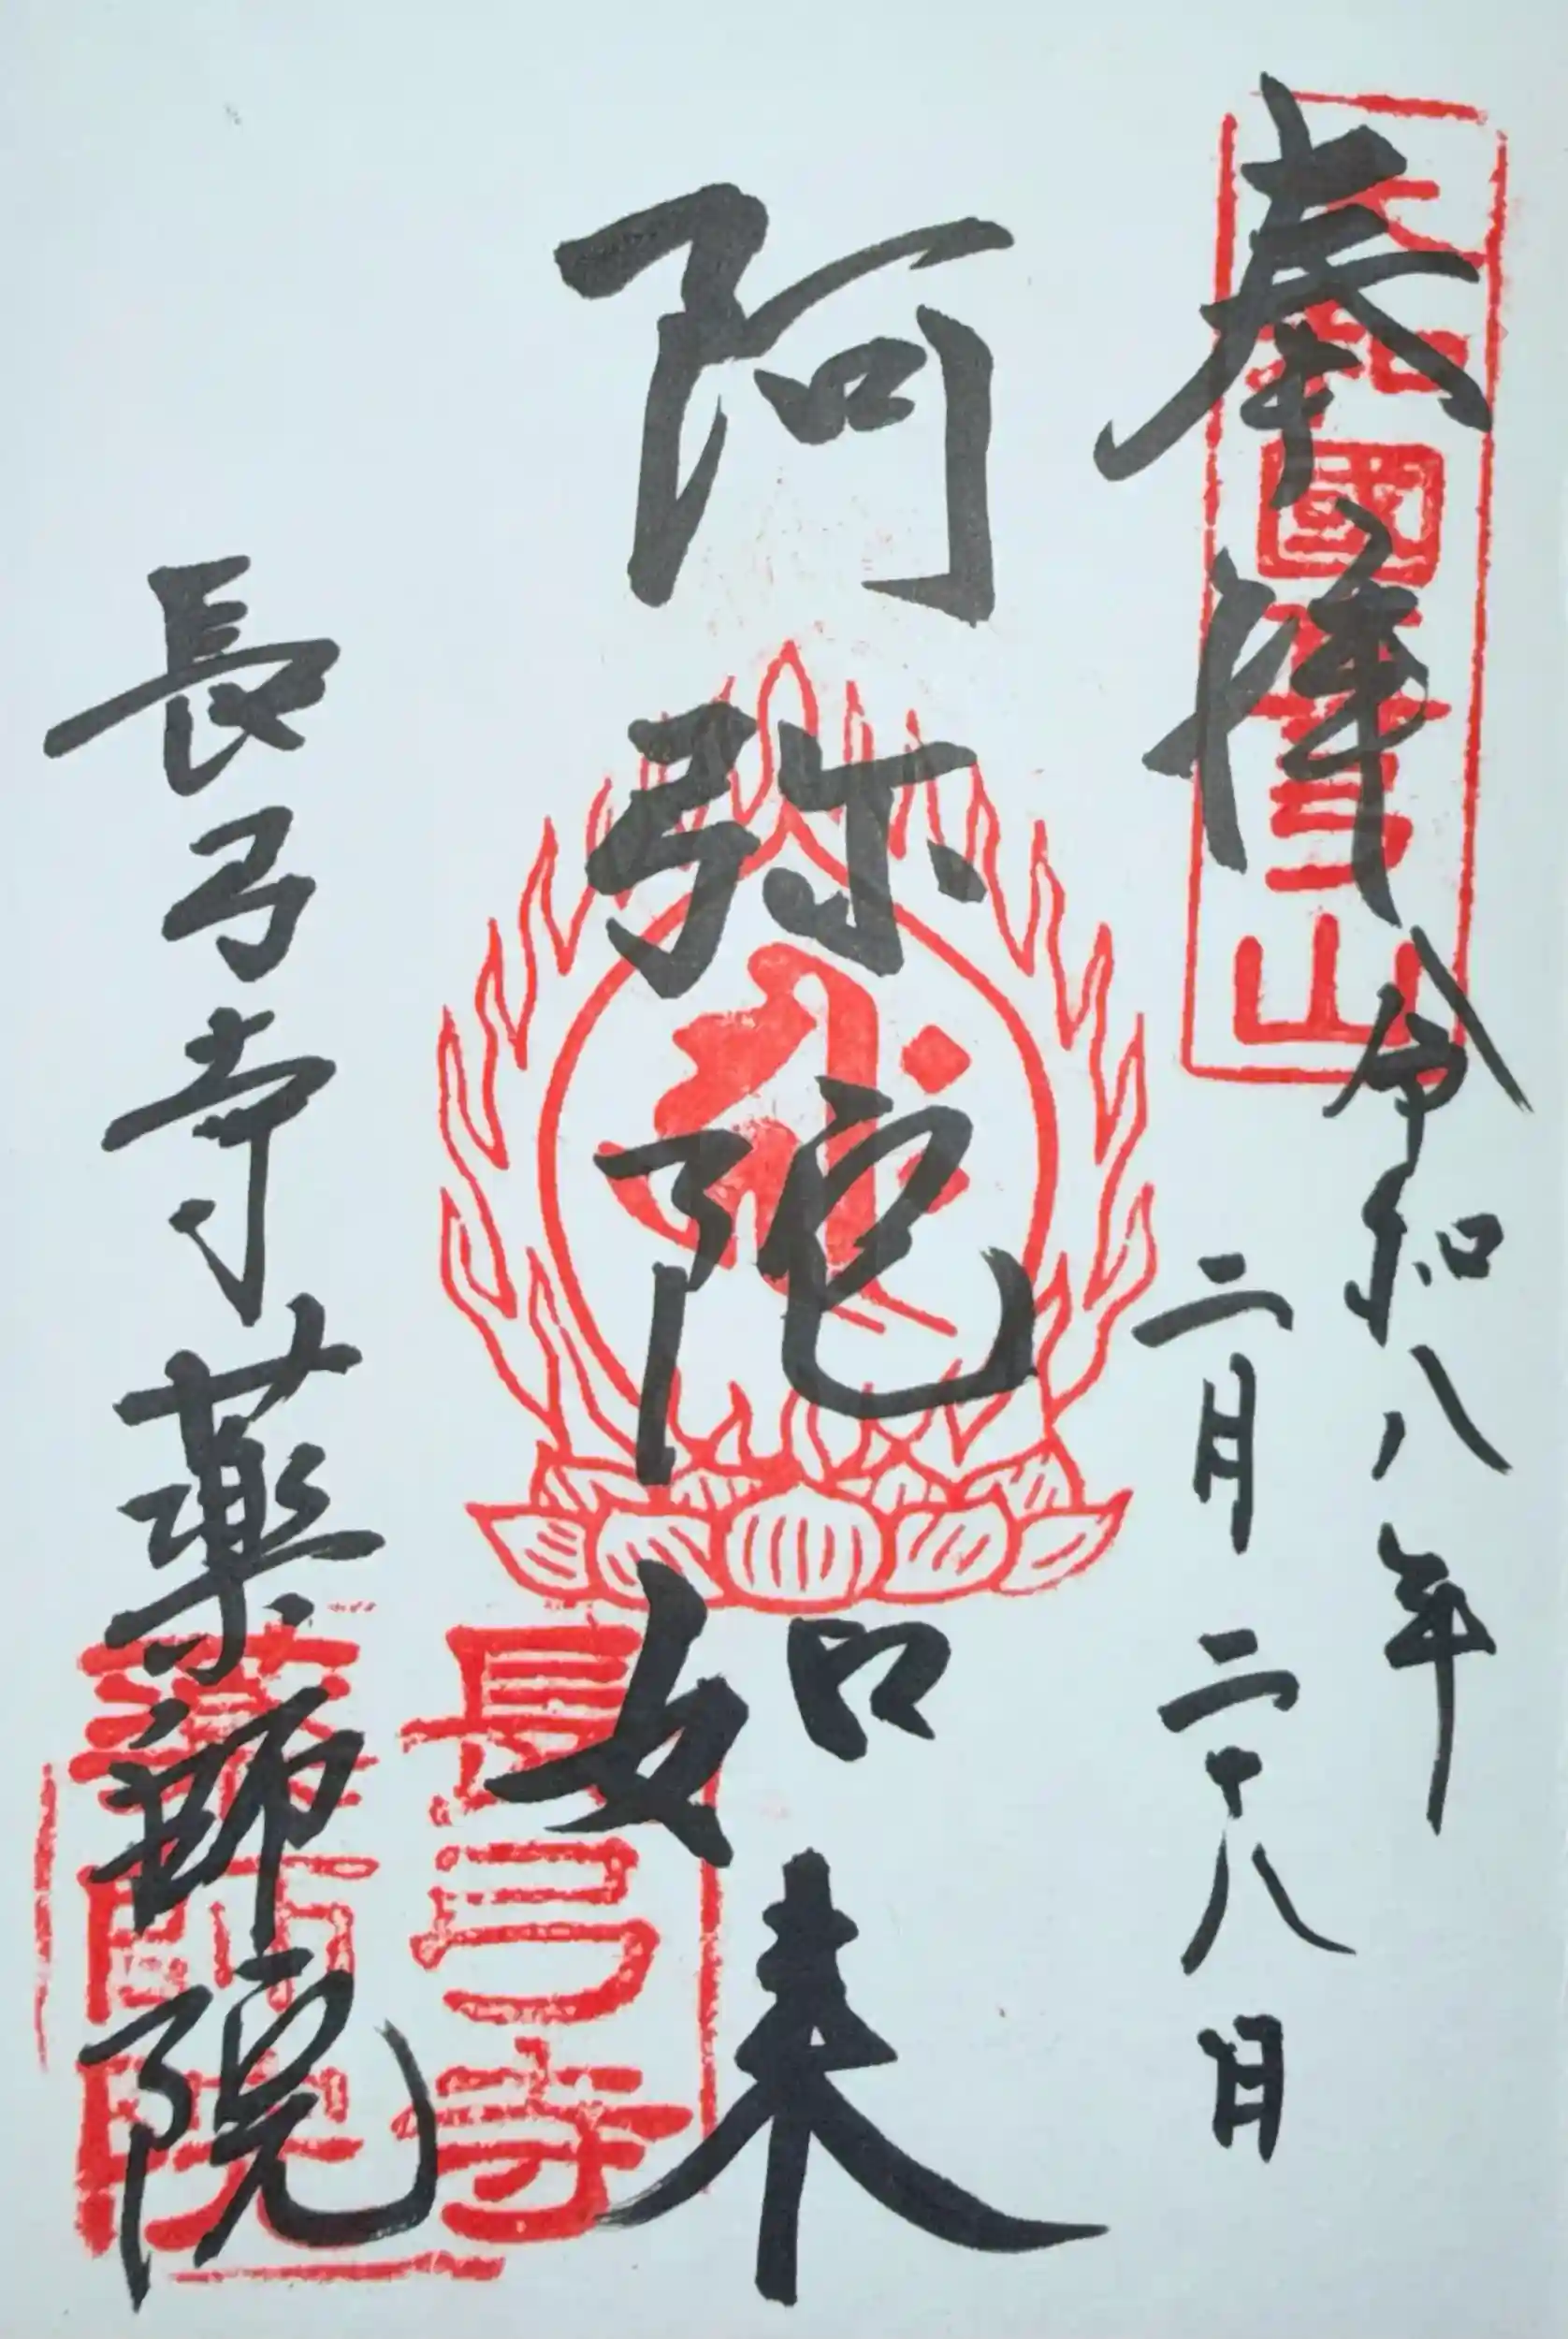 奉拝
大和國真弓山
令和八年
二月二十八日
阿弥陀如来
長弓寺
薬師院
長弓寺薬師院